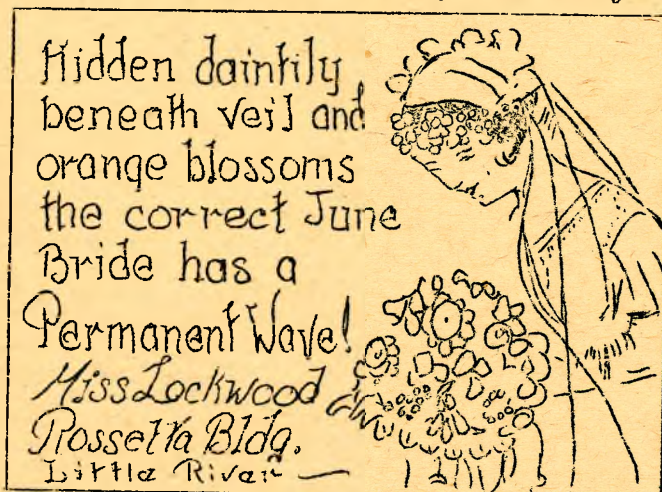 Hidden daintily
beneath veil and
orange blossoms
the correct June
Bride has a
Permanent Wave!
Miss Lockwood
Rossetta Bldg.
Little River —